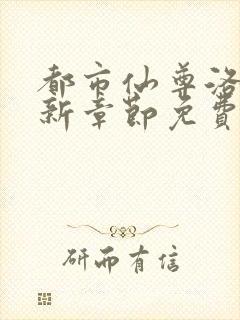 都市仙尊洛
新章節免費
研而有信